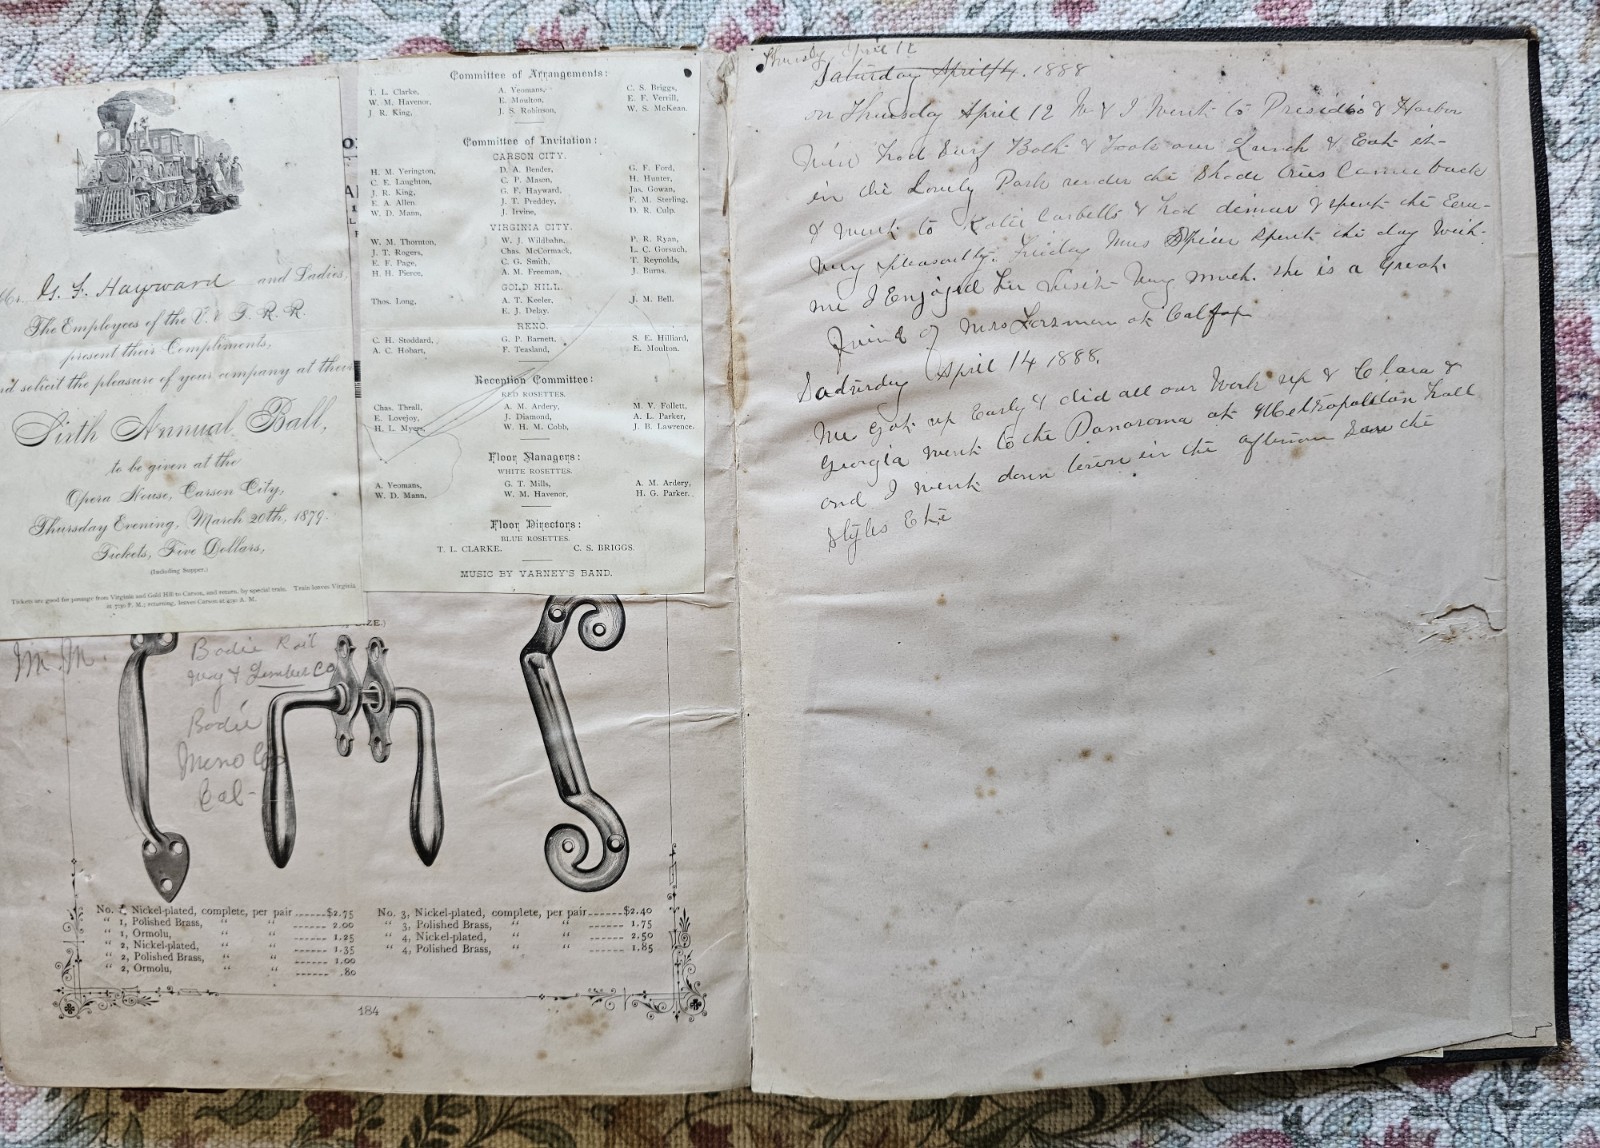 Mr. G. F. Hayward and Ladies,
The Employees of the V. & T. R. R.
present their Compliments,
nd solicit the pleasure of your company at their
Sixth Annual Ball,
to be given at the
Opera House, Carson City,
Thursday Evening, March 20th, 1879.
Tickets, Five Dollars,
(Including Supper.)
Tickets are good for passage from Virginia and Gold Hill to Carson, and return, by special train. Train leaves Virginia
at 7:30 P. M.; returning, leaves Carson at 4:30 A. M.
Committee of Arrangements:
T. L. Clarke, A. Yeomans, C. S. Briggs,
W. M. Havenor, E. Moulton, E. F. Verrill,
J. R. King, J. S. Robinson, W. S. McKean.
Committee of Invitation:
CARSON CITY.
H. M. Yerington, D. A. Bender, G. F. Ford,
C. E. Laughton, C. P. Mason, H. Hunter,
J. R. King, G. F. Hayward, Jas. Gowan,
E. A. Allen, J. T. Preddey, F. M. Sterling,
W. D. Mann, J. Irvine, D. R. Culp.
VIRGINIA CITY.
W. M. Thornton, W. J. Wildhahn, P. R. Ryan,
J. T. Rogers, Chas. McCormack, L. C. Gorsuch,
E. F. Page, C. G. Smith, T. Reynolds,
H. H. Pierce, A. M. Freeman, J. Burns.
GOLD HILL.
Thos. Long, A. T. Keeler, J. M. Bell.
E. J. Delay.
RENO.
C. H. Stoddard, G. P. Barnett, S. E. Hilliard,
A. C. Hobart, F. Teasland, E. Moulton.
Reception Committee:
RED ROSETTES.
Chas. Thrall, A. M. Ardery, M. V. Follett,
E. Lovejoy, J. Diamond, A. L. Parker,
H. L. Myers, W. H. M. Cobb, J. B. Lawrence.
Floor Managers:
WHITE ROSETTES.
A. Yeomans, G. T. Mills, A. M. Ardery,
W. D. Mann, W. M. Havenor, H. G. Parker.
Floor Directors:
BLUE ROSETTES.
T. L. CLARKE. C. S. BRIGGS.
MUSIC BY VARNEY'S BAND.
M. M.
Bodie Rail
way & Lumber Co
Bodie
Mono Co
Cal-
No. 1, Nickel-plated, complete, per pair ......$2.75
" 1, Polished Brass, " " ...... 2.00
" 1, Ormolu, " " ...... 1.25
" 2, Nickel-plated, " " ...... 1.35
" 2, Polished Brass, " " ...... 1.00
" 2, Ormolu, " " ...... .80
No. 3, Nickel-plated, complete, per pair......$2.40
" 3, Polished Brass, " " ...... 1.75
" 4, Nickel-plated, " " ...... 2.50
" 4, Polished Brass, " " ...... 1.85
184
Thursdy April 12
Saturday April 14. 1888
on Thursday April 12 M & I went to Presidio & Harbor
View had Surf Bath & Took our Lunch & Eat it
in the Lovely Park under the Shade trees Came back
& went to Katie Corbetts & had dinner & spent the Eve-
very pleasantly. Friday Mrs Spicer spent the day with
me I Enjoyed her visit very much. She is a Great
friend of Mrs at Colfax
Saturday April 14 1888.
We Got up Early & did all our Work up & Clara &
Georgia went to the Panorama at Metropolitan Hall
and I went down town in the afternoon Saw the
Styles Etc